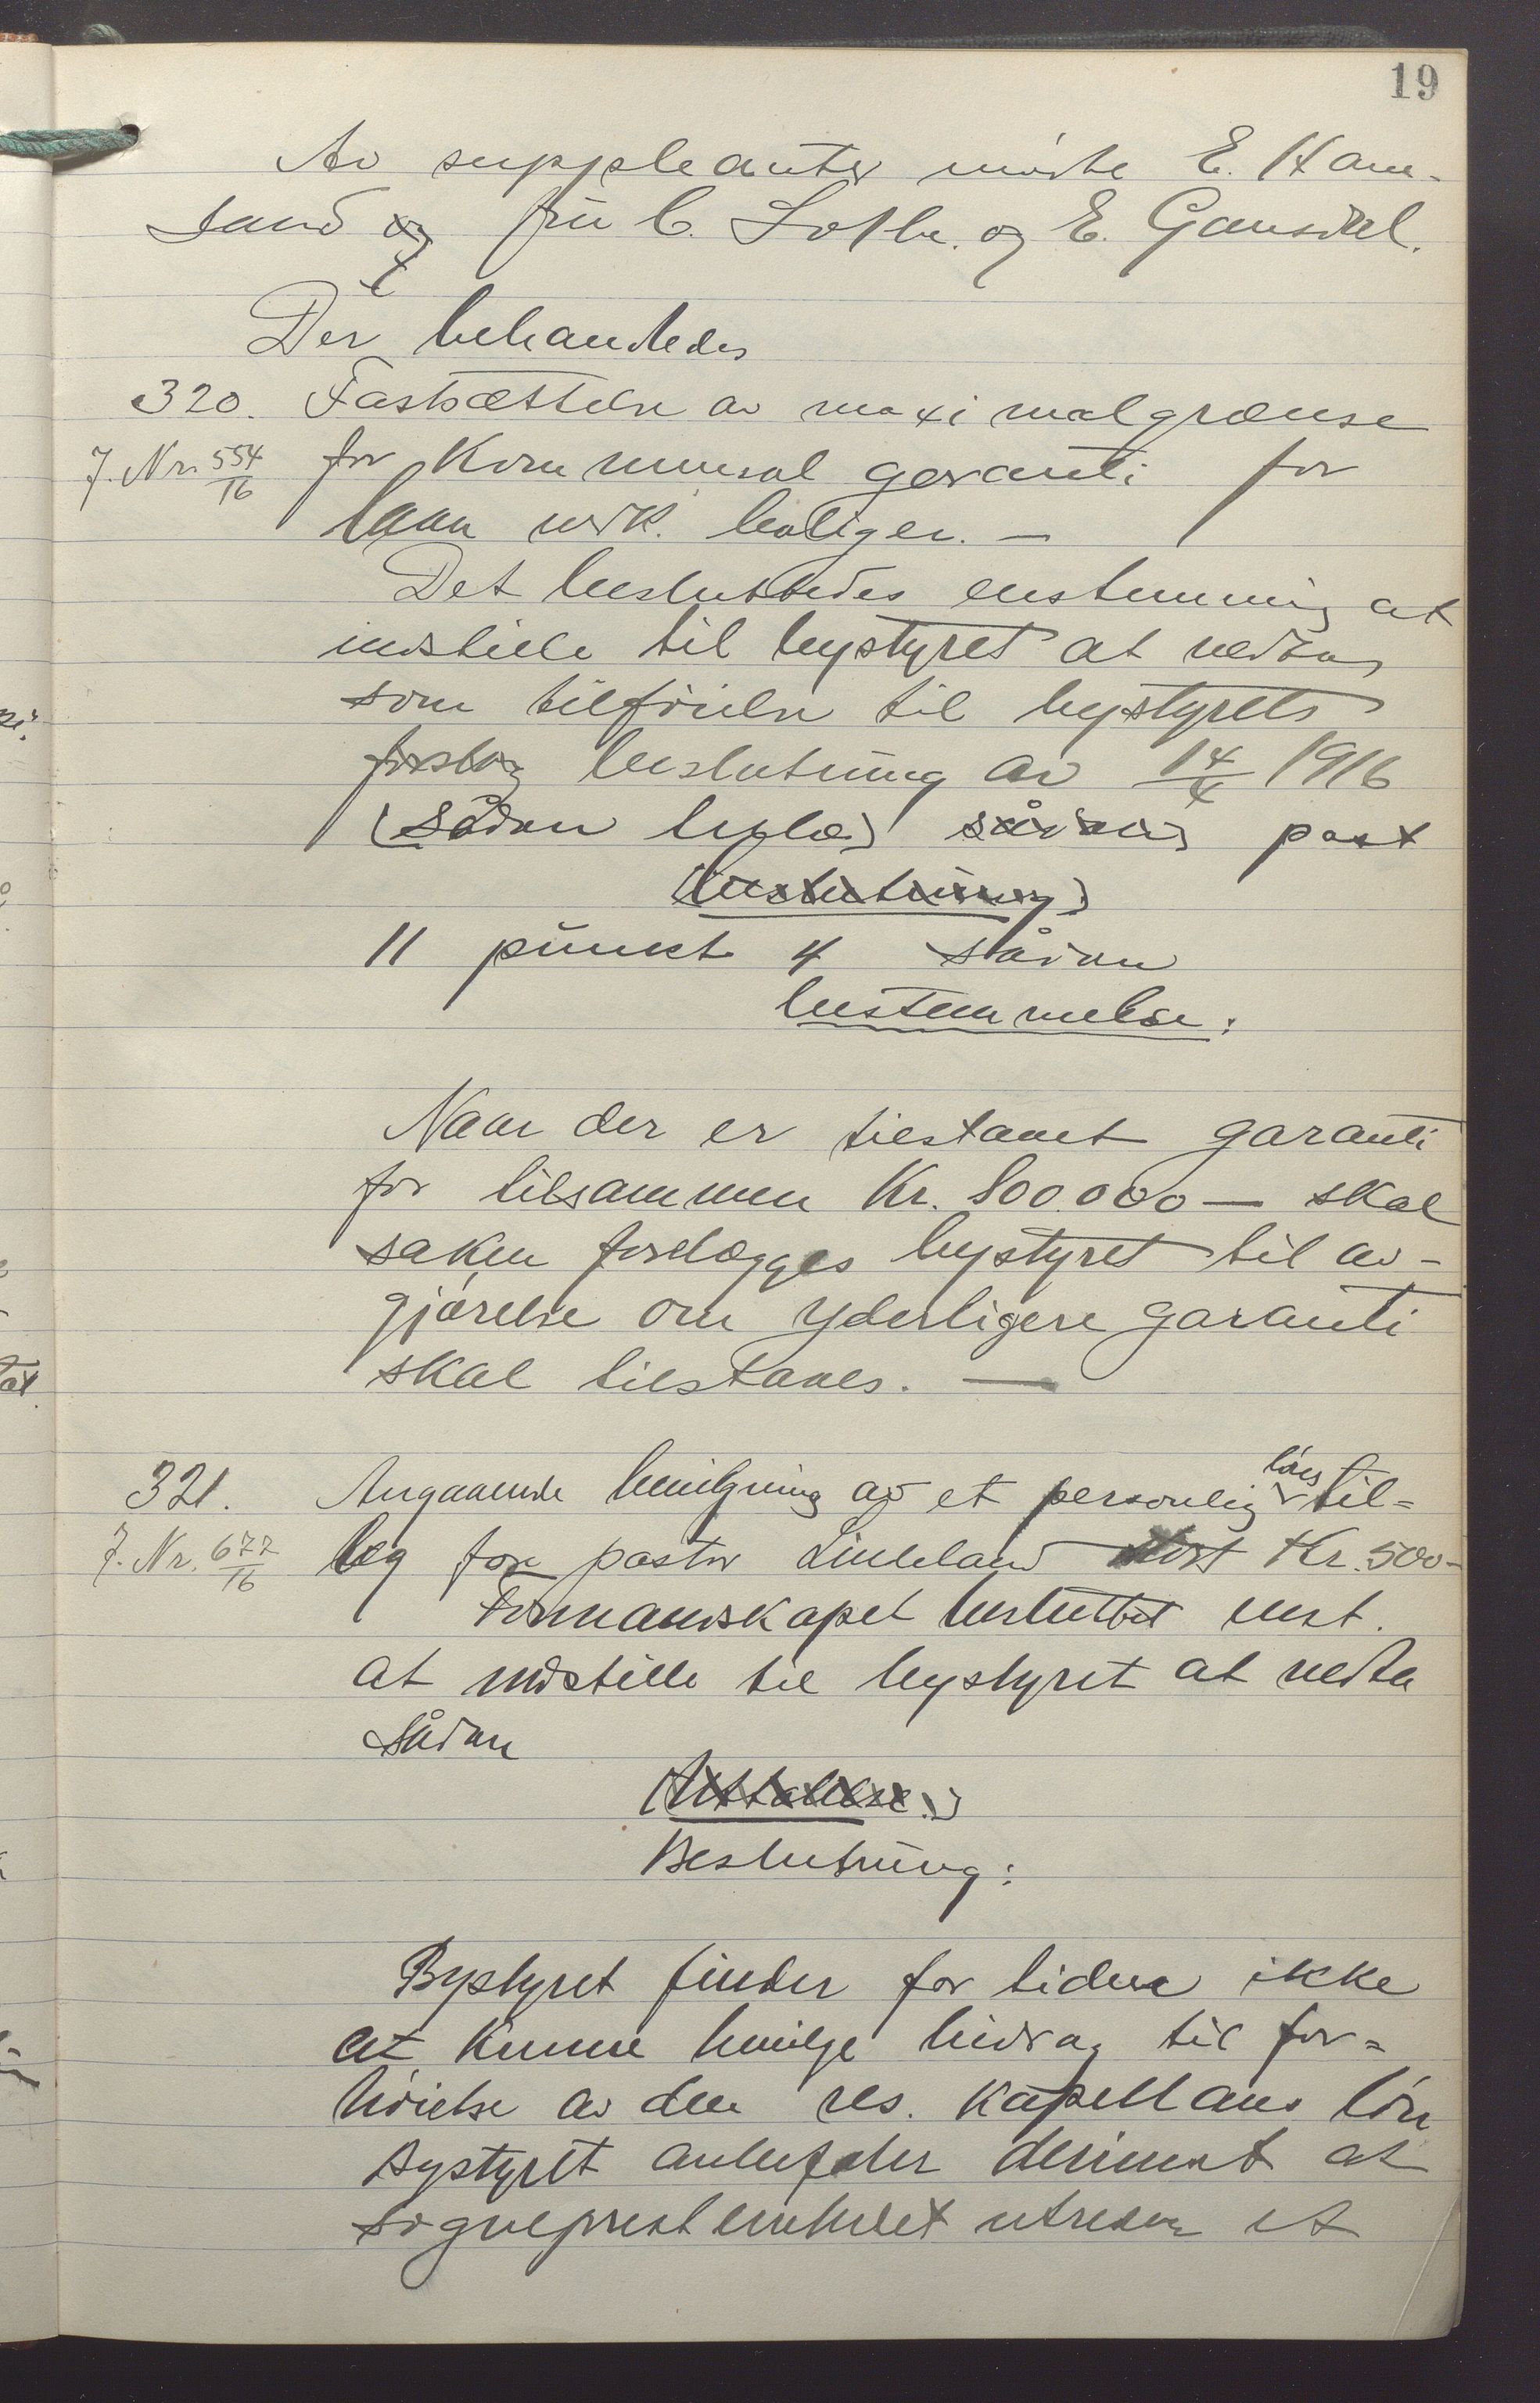 19
Av suppleanter møtte E. Ham-
sand og fru C. Lothe. og E. Gausdel.
Der behandledes
320. Fastsættelse av maximalgrænse
J. Nr. 554/16 for kommunal garanti for
laan vedk. boliger. —
Det besluttedes enstemmig at
indstille til bystyret at vedta
som tilføielse til bystyrets
forslag beslutning av 14/4 1916
(sådan sådan post
(beslutning)
11 punkt 4 sådan
bestemmelse:
Naar der er tilstaaet garanti
for tilsammen Kr. 800.000 — skal
saken forelægges bystyret til av-
gjørelse om yderligere garanti
skal tilstaaes. —
321. Angaaende bevilgning av et personlig løns til-
J. Nr. 677/16 læg for pastor Lindeland stort Kr. 500-
Formandskapet besluttet enst.
at indstille til bystyret at vedta
sådan
(Uttalelse:)
Beslutning:
Bystyret finder for tiden ikke
at kunne bevilge bidrag til for=
høielse av den res. kapellans løn
Bystyret anbefaler derimot at
sogneprestembedet utreder et